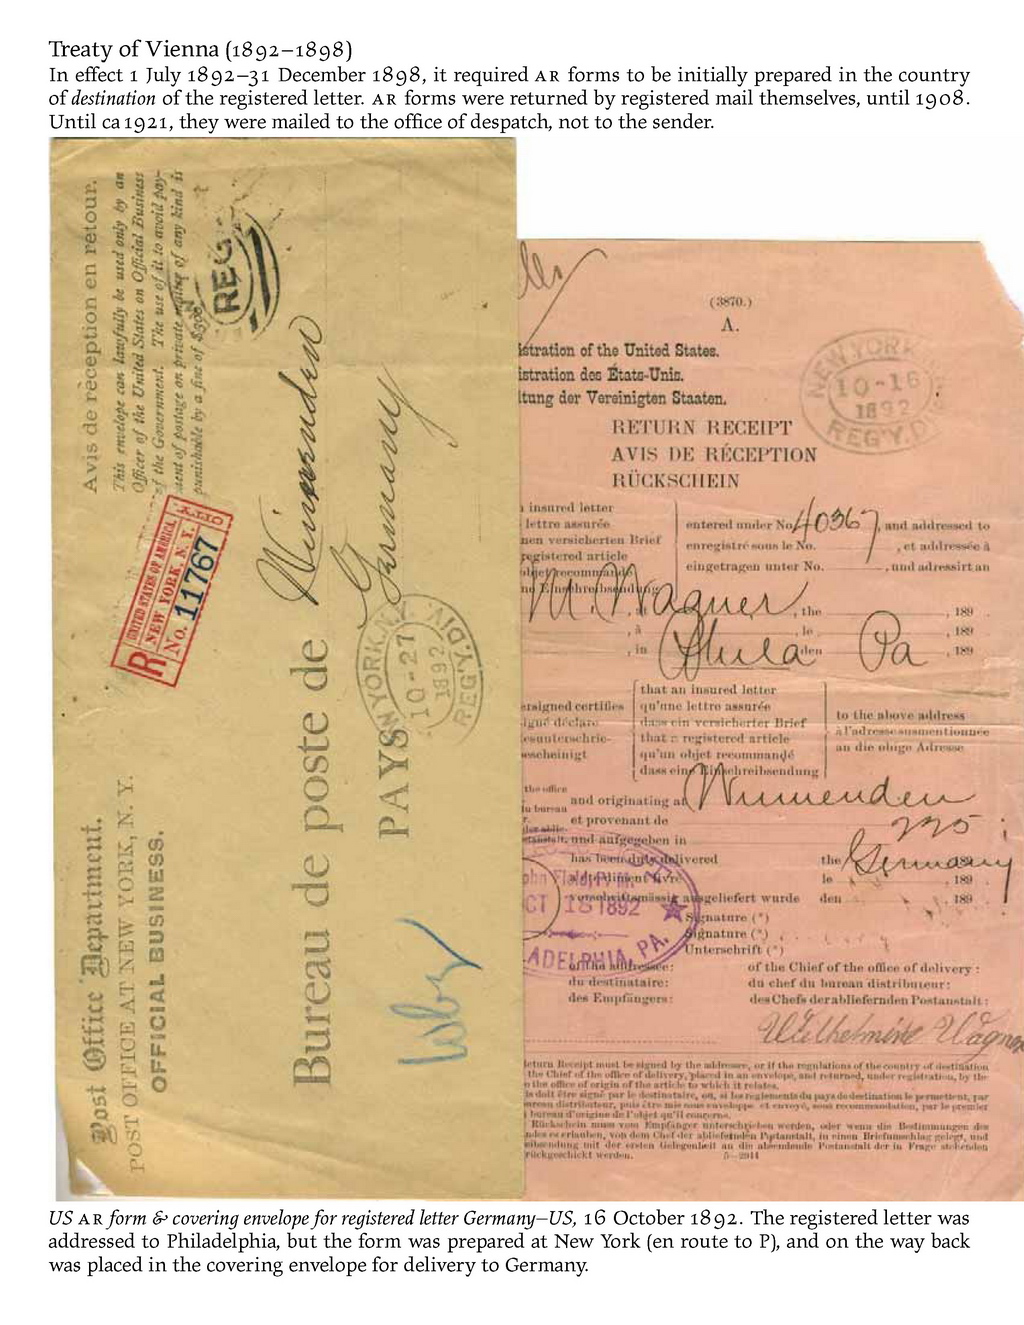 Treaty of Vienna (1892–1898)
In effect 1 July 1892–31 December 1898, it required AR forms to be initially prepared in the country
of destination of the registered letter. AR forms were returned by registered mail themselves, until 1908.
Until ca 1921, they were mailed to the office of despatch, not to the sender.
Avis de réception en retour.
This envelope can lawfully be used only by an
Officer of the United States on Official Business
of the Government. The use of it to avoid pay-
ment of postage on private of any kind is
punishable by a fine of $300.
REG
Post Office Department.
POST OFFICE AT NEW YORK, N. Y.
OFFICIAL BUSINESS.
R
UNITED STATES OF AMERICA
NEW YORK, N.Y.
No. 11767
Winnenden
Germany
Bureau de poste de
PAYS
NEW YORK, N.Y.
10-27
1892
REG'Y.DIV.
(3870.)
A.
istration of the United States.
istration des États-Unis.
ltung der Vereinigten Staaten.
NEW YORK
10-16
1892
REG'Y.D
RETURN RECEIPT
AVIS DE RÉCEPTION
RÜCKSCHEIN
insured letter
lettre assurée
nen versicherten Brief
registered article
objet recommandé
entered under No. 40367, and addressed to
enregistré sous le No. , et adressée à
eingetragen unter No. , und adressirt an
M. Wagner, the , 189
, à , le , 189
, in Phila Pa den , 189
ersigned certifies
igné déclare
esunterschrie-
escheinigt
that an insured letter
qu'une lettre assurée
dass ein versicherter Brief
that a registered article
qu'un objet recommandé
dass eine Einschreibsendung
to the above address
à l'adresse susmentionnée
an die obige Adresse
the office
and originating at Winnenden
et provenant de
und aufgegeben in
has been duly delivered the Germany 189
le 189
ausgeliefert wurde den 189
CT 18 1892
ADELPHIA, PA.
Signature (*)
Signature (*)
Unterschrift (*)
of the addressee:
du destinataire:
des Empfängers:
of the Chief of the office of delivery:
du chef du bureau distributeur:
des Chefs der abliefernden Postanstalt:
Wilhelmine Wagner
eturn Receipt must be signed by the addressee, or if the regulations of the country of destination
the Chief of the office of delivery, placed in an envelope, and returned, under registration, by the
the office of origin of the article to which it relates.
doit être signé par le destinataire, ou, si les règlements du pays de destination le permettent, par
bureau distributeur, puis être mis sous enveloppe et envoyé, sous recommandation, par le premier
bureau d'origine de l'objet qu'il concerne.
Rückschein muss vom Empfänger unterschrieben werden, oder wenn die Bestimmungen des
es erlauben, von dem Chef der abliefernden Postanstalt, in einen Briefumschlag gelegt, und
mit der ersten Gelegenheit an die absendende Postanstalt der in Frage stehenden
rückgeschickt werden. 5—2944
US AR form & covering envelope for registered letter Germany–US, 16 October 1892. The registered letter was
addressed to Philadelphia, but the form was prepared at New York (en route to P), and on the way back
was placed in the covering envelope for delivery to Germany.